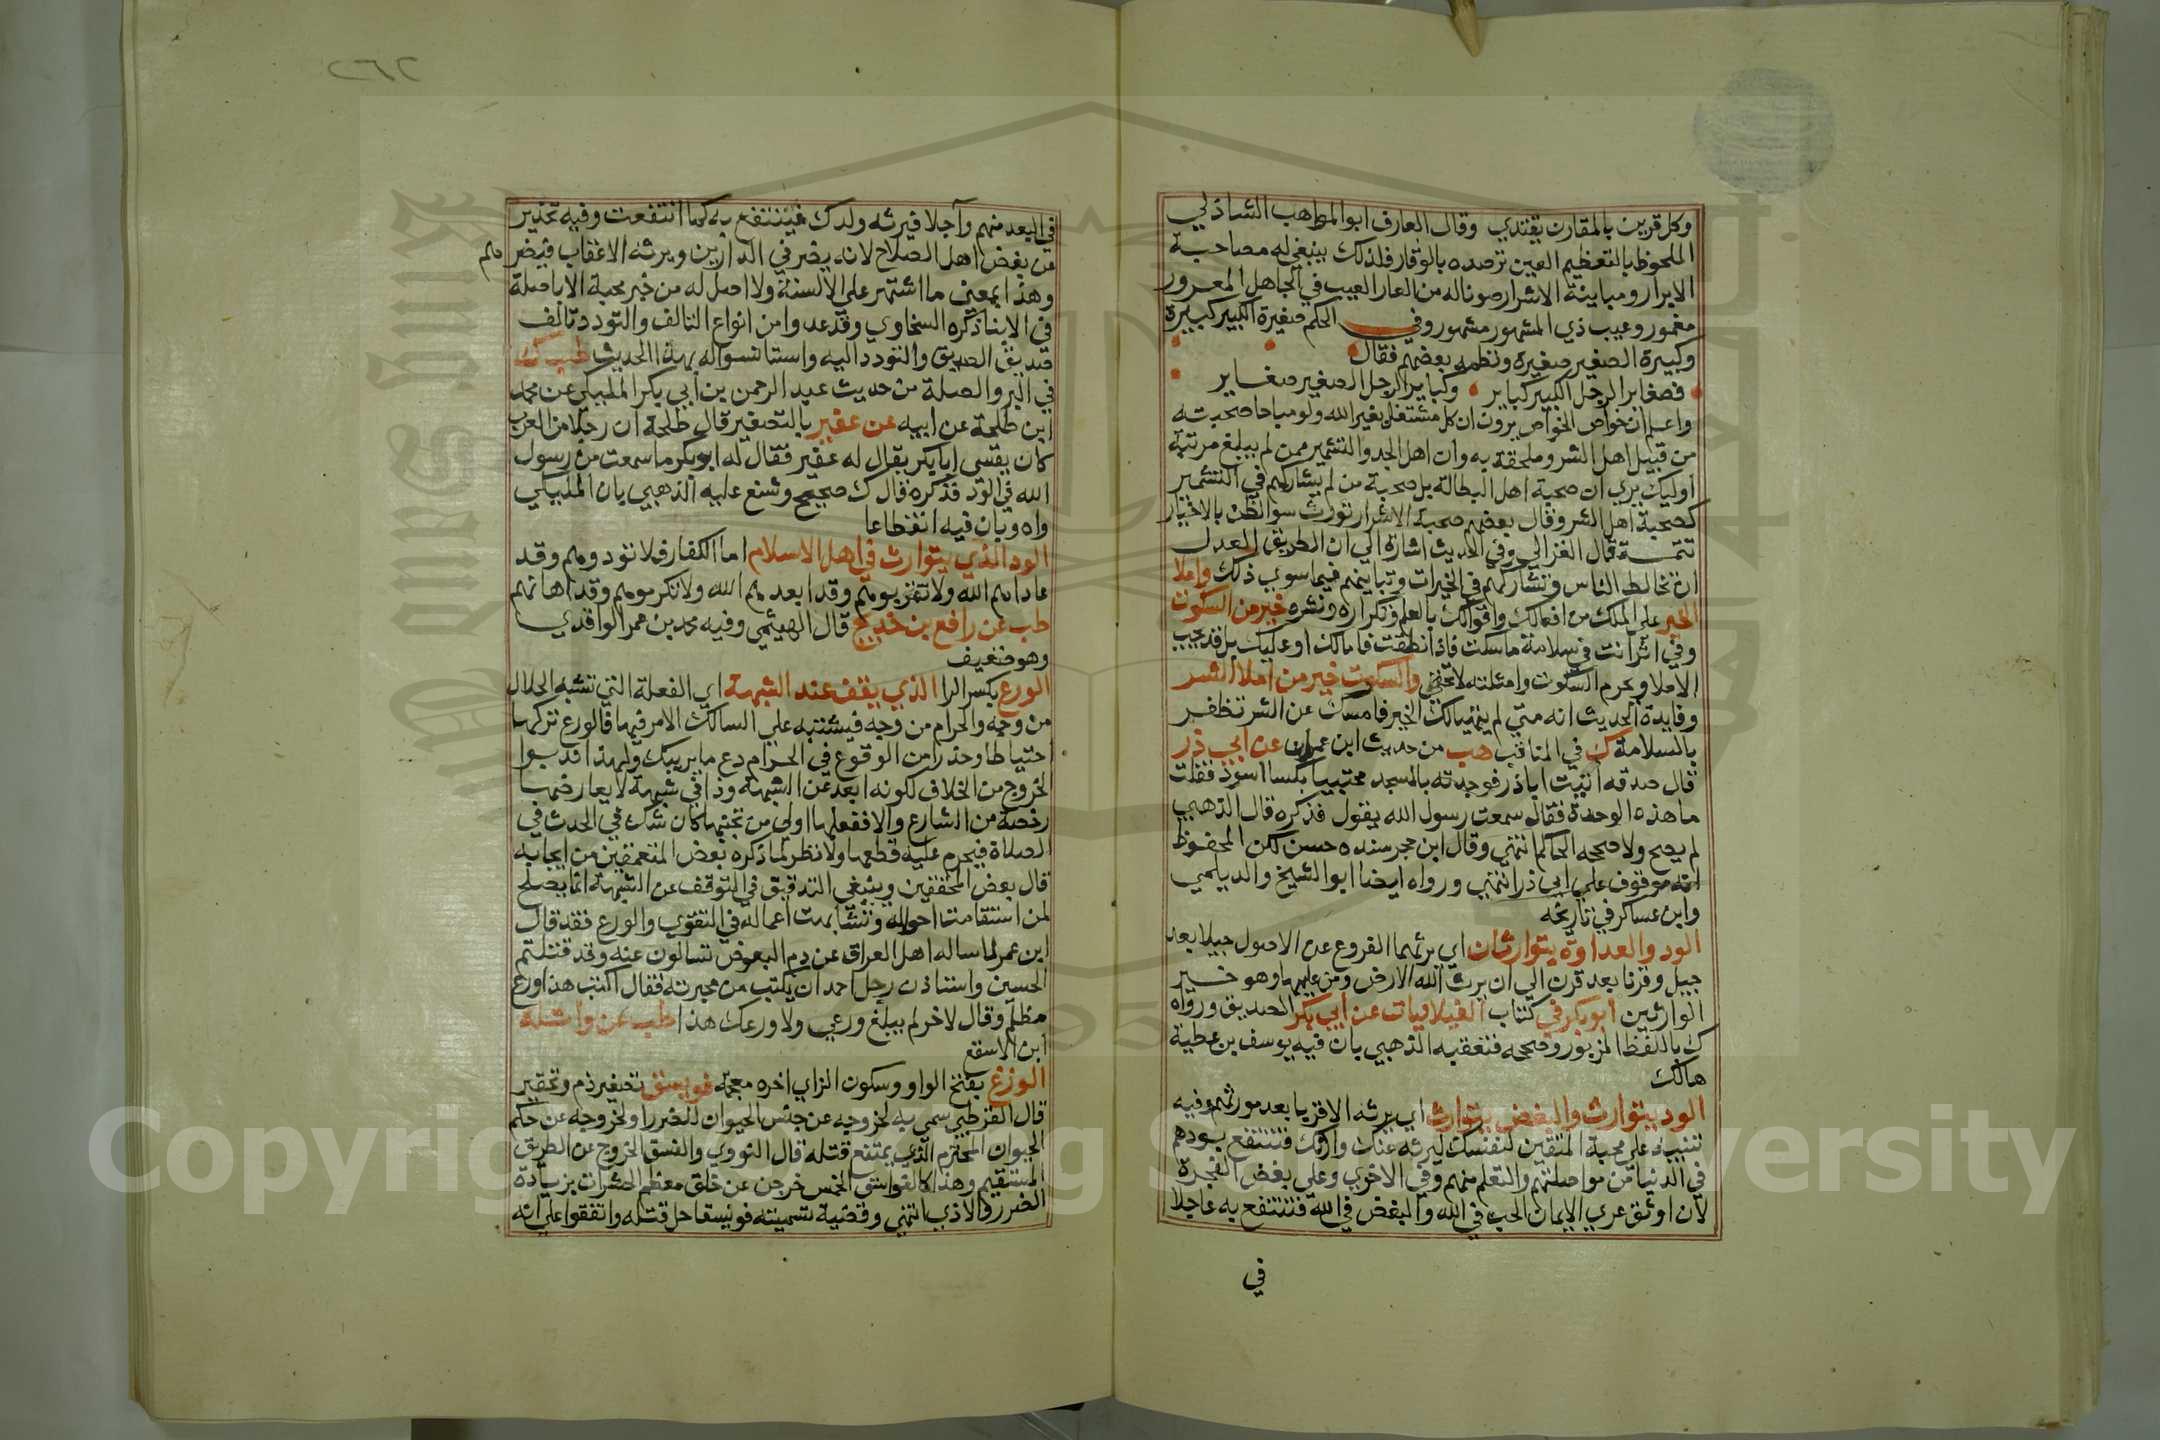 وكل قرين بالمقارن يقتدي وقال العارف ابو المواهب الشاذلي
الملحوظ بالتعظيم العين ترصده بالوقار فلذلك ينبغي له مصاحبة
الابرار ومباينة الاشرار صونا له من العار العيب في الجاهل المعرور
مغمور وعيب ذي المشهور مشهور وفي الحكم صغيرة الكبير كبيرة
وكبيرة الصغير صغيرة ونظمه بعضهم فقال
فصغاير الرجل الكبير كباير وكباير الرجل الصغير صغاير
واعلم ان خواص الخواص يرون ان كل مشتغل بغير الله ولو مباحا صحبته
من قبيل اهل الشر وملحقة به وان اهل الجد والتشمير ممن لم يبلغ مرتبة
اوليك يري ان صحبة اهل البطالة بل صحبة من لم يشاركهم في التشمير
كصحبة اهل الشر وقال بعضهم صحبة الاشرار تورث سو الظن بالاخيار
تتمة قال الغزالي وفي الحديث اشارة الي ان الطريق العدل
ان تخالط الناس وتشاركهم في الخيرات وتباينهم فيما سوي ذلك واملا
الخير علي الملك من افعالك واقوالك بالعلم وتكراره ونشره خير من السكوت
وفي اثر انت في سلامة ما سكت فاذا نطقت فاما لك او عليك بل قد يجب
الاملا ويحرم السكوت وامثلته لا تخفي والسكوت خير من املا الشر
وفايدة الحديث انه متي لم يتهيا لك الخير فامسك عن الشر تظفر
بالسلامة ك في المناقب هب من حديث ابن عمران عن ابي ذر
قال صدقه اتيت اباذر فوجدته بالمسجد محتبيا بكسا اسود فقلت
ما هذه الوحدة فقال سمعت رسول الله يقول فذكره قال الذهبي
لم يصح ولا صححه الحاكم انتهي وقال ابن حجر سنده حسن لكن المحفوظ
انه موقوف علي ابي ذر انتهي ورواه ايضا ابو الشيخ والديلمي
وابن عساكر في تاريخه
الود والعداوة يتوارثان اي يرثهما الفروع عن الاصول جيلا بعد
جيل وقرنا بعد قرن الي ان يرث الله الارض ومن عليها وهو خير
الوارثين ابو بكر في كتاب الغيلانيات عن ابي بكر الصديق ورواه
ك باللفظ المزبور وصححه فتعقبه الذهبي بان فيه يوسف بن عطية
هالك
الود يتوارث والبغض يتوارث اي يرثه الاقربا بعد مورثهم وفيه
تنبيه علي محبة المتقين لنفسك ليرثه عنك وارثك فتنتفع بودهم
في الدنيا من مواصلتهم والتعلم منهم وفي الاخري وعلي بغض الفجرة
لان اوثق عري الايمان الحب في الله والبغض في الله فتنتفع به عاجلا
في
٢٦٢
في البعد منهم وآجلا فيرثه ولدك فينتفع به كما انتفعت وفيه تحذير
من بغض اهل الصلاح لانه يضر في الدارين ويرثه الاعقاب فيضرهم
وهذا بمعني ما اشتهر علي الالسنة ولا اصل له من خير محبة الاباصلة
في الابنا ذكره السخاوي وقد عدوا من انواع التالف والتودد تالف
صديق الصديق والتودد اليه واستانسوا له بهذا الحديث طب ك
في البر والصلة من حديث عبد الرحمن بن ابي بكر المليكي عن محمد
ابن طلحة عن ابيه عن عفير بالتصغير قال طلحة ان رجلا من العرب
كان يغشي ابا بكر يقال له عفير فقال له ابو بكر ما سمعت من رسول
الله في الود فذكره قال ك صحيح وشنع عليه الذهبي بان المليكي
واه وبان فيه انقطاعا
الود الذي يتوارث في اهل الاسلام اما الكفار فلا تودوهم وقد
عاداهم الله ولا تقربوهم وقد ابعدهم الله ولا تكرموهم وقد اهانهم
طب عن رافع بن خديج قال الهيثمي وفيه محمد بن عمر الواقدي
وهو ضعيف
الورع بكسر الرا الذي يقف عند الشبهة اي الفعلة التي تشبه الحلال
من وجه والحرام من وجه فيشتبه علي السالك الامر فيها فالورع تركها
احتياطا وحذرا من الوقوع في الحرام دع ما يريبك ولهذا ندبوا
الخروج من الخلاف لكونه ابعد عن الشبهة وذا في شبهة لا يعارضها
رخصة من الشارع والا ففعلها اولي من تجنبها كان شك في الحدث في
الصلاة فيحرم عليه قطعها ولا نظر لما ذكره بعض المتعمقين من ايجابه
قال بعض المحققين وينبغي التدقيق في التوقف عن الشبهة انما يصلح
لمن استقامت احواله وتشابهت اعماله في التقوي والورع فقد قال
ابن عمر لما ساله اهل العراق عن دم البعوض تسالون عنه وقد قتلتم
الحسين واستاذن رجل احمد ان يكتب من محبرته فقال اكتب هذا ورع
مظلم وقال لاخر لم يبلغ ورعي ولا ورعك هذا طب عن واثلة
ابن الاسقع
الوزغ بفتح الواو وسكون الزاي اخره معجمة فويسق تصغير ذم وتحقير
قال القرطبي سمي به لخروجه عن جنس الحيوان للضرر او لخروجه عن حكم
الحيوان المحترم الذي يمتنع قتله قال النووي والفسق الخروج عن الطريق
المستقيم وهذا كالفواسق الخمس خرجن عن خلق معظم الحشرات بزيادة
الضرر والاذي انتهي وقضية تسميته فويسقا حل قتله واتفقوا علي انه
Copyright © King Saud University
1957